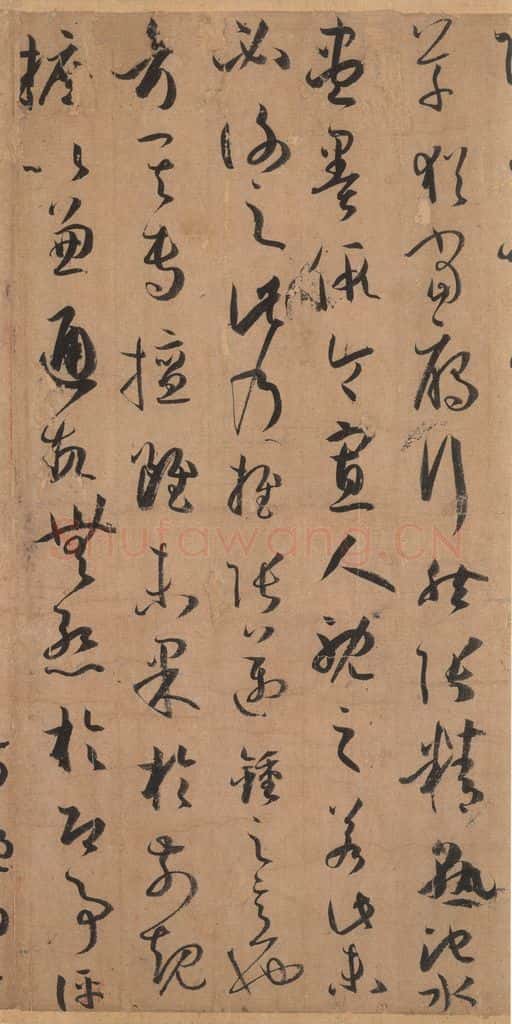 草猶當雁行然張精熟池水
盡墨假令寡人耽之若此未
必謝之此乃推張邁鍾之意也
考其專擅雖未果於前規
摭以兼通故無慚於即事評
shufawang.CN